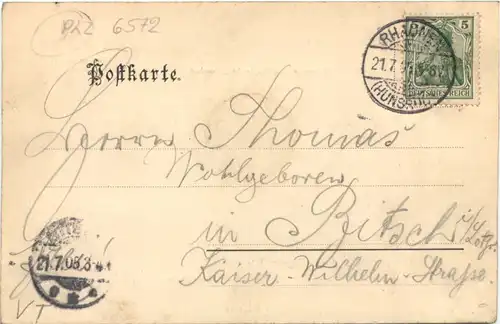 PLZ 6572
5
DEUTSCHES REICH
RHAUNEN
21.7.
(HUNSRÜCK)
Postkarte.
Herrn Thomas
Wohlgeboren
in Bitsch i/Lothr.
Kaiser-Wilhelm-Strasse
21.7.05.3-4
VI